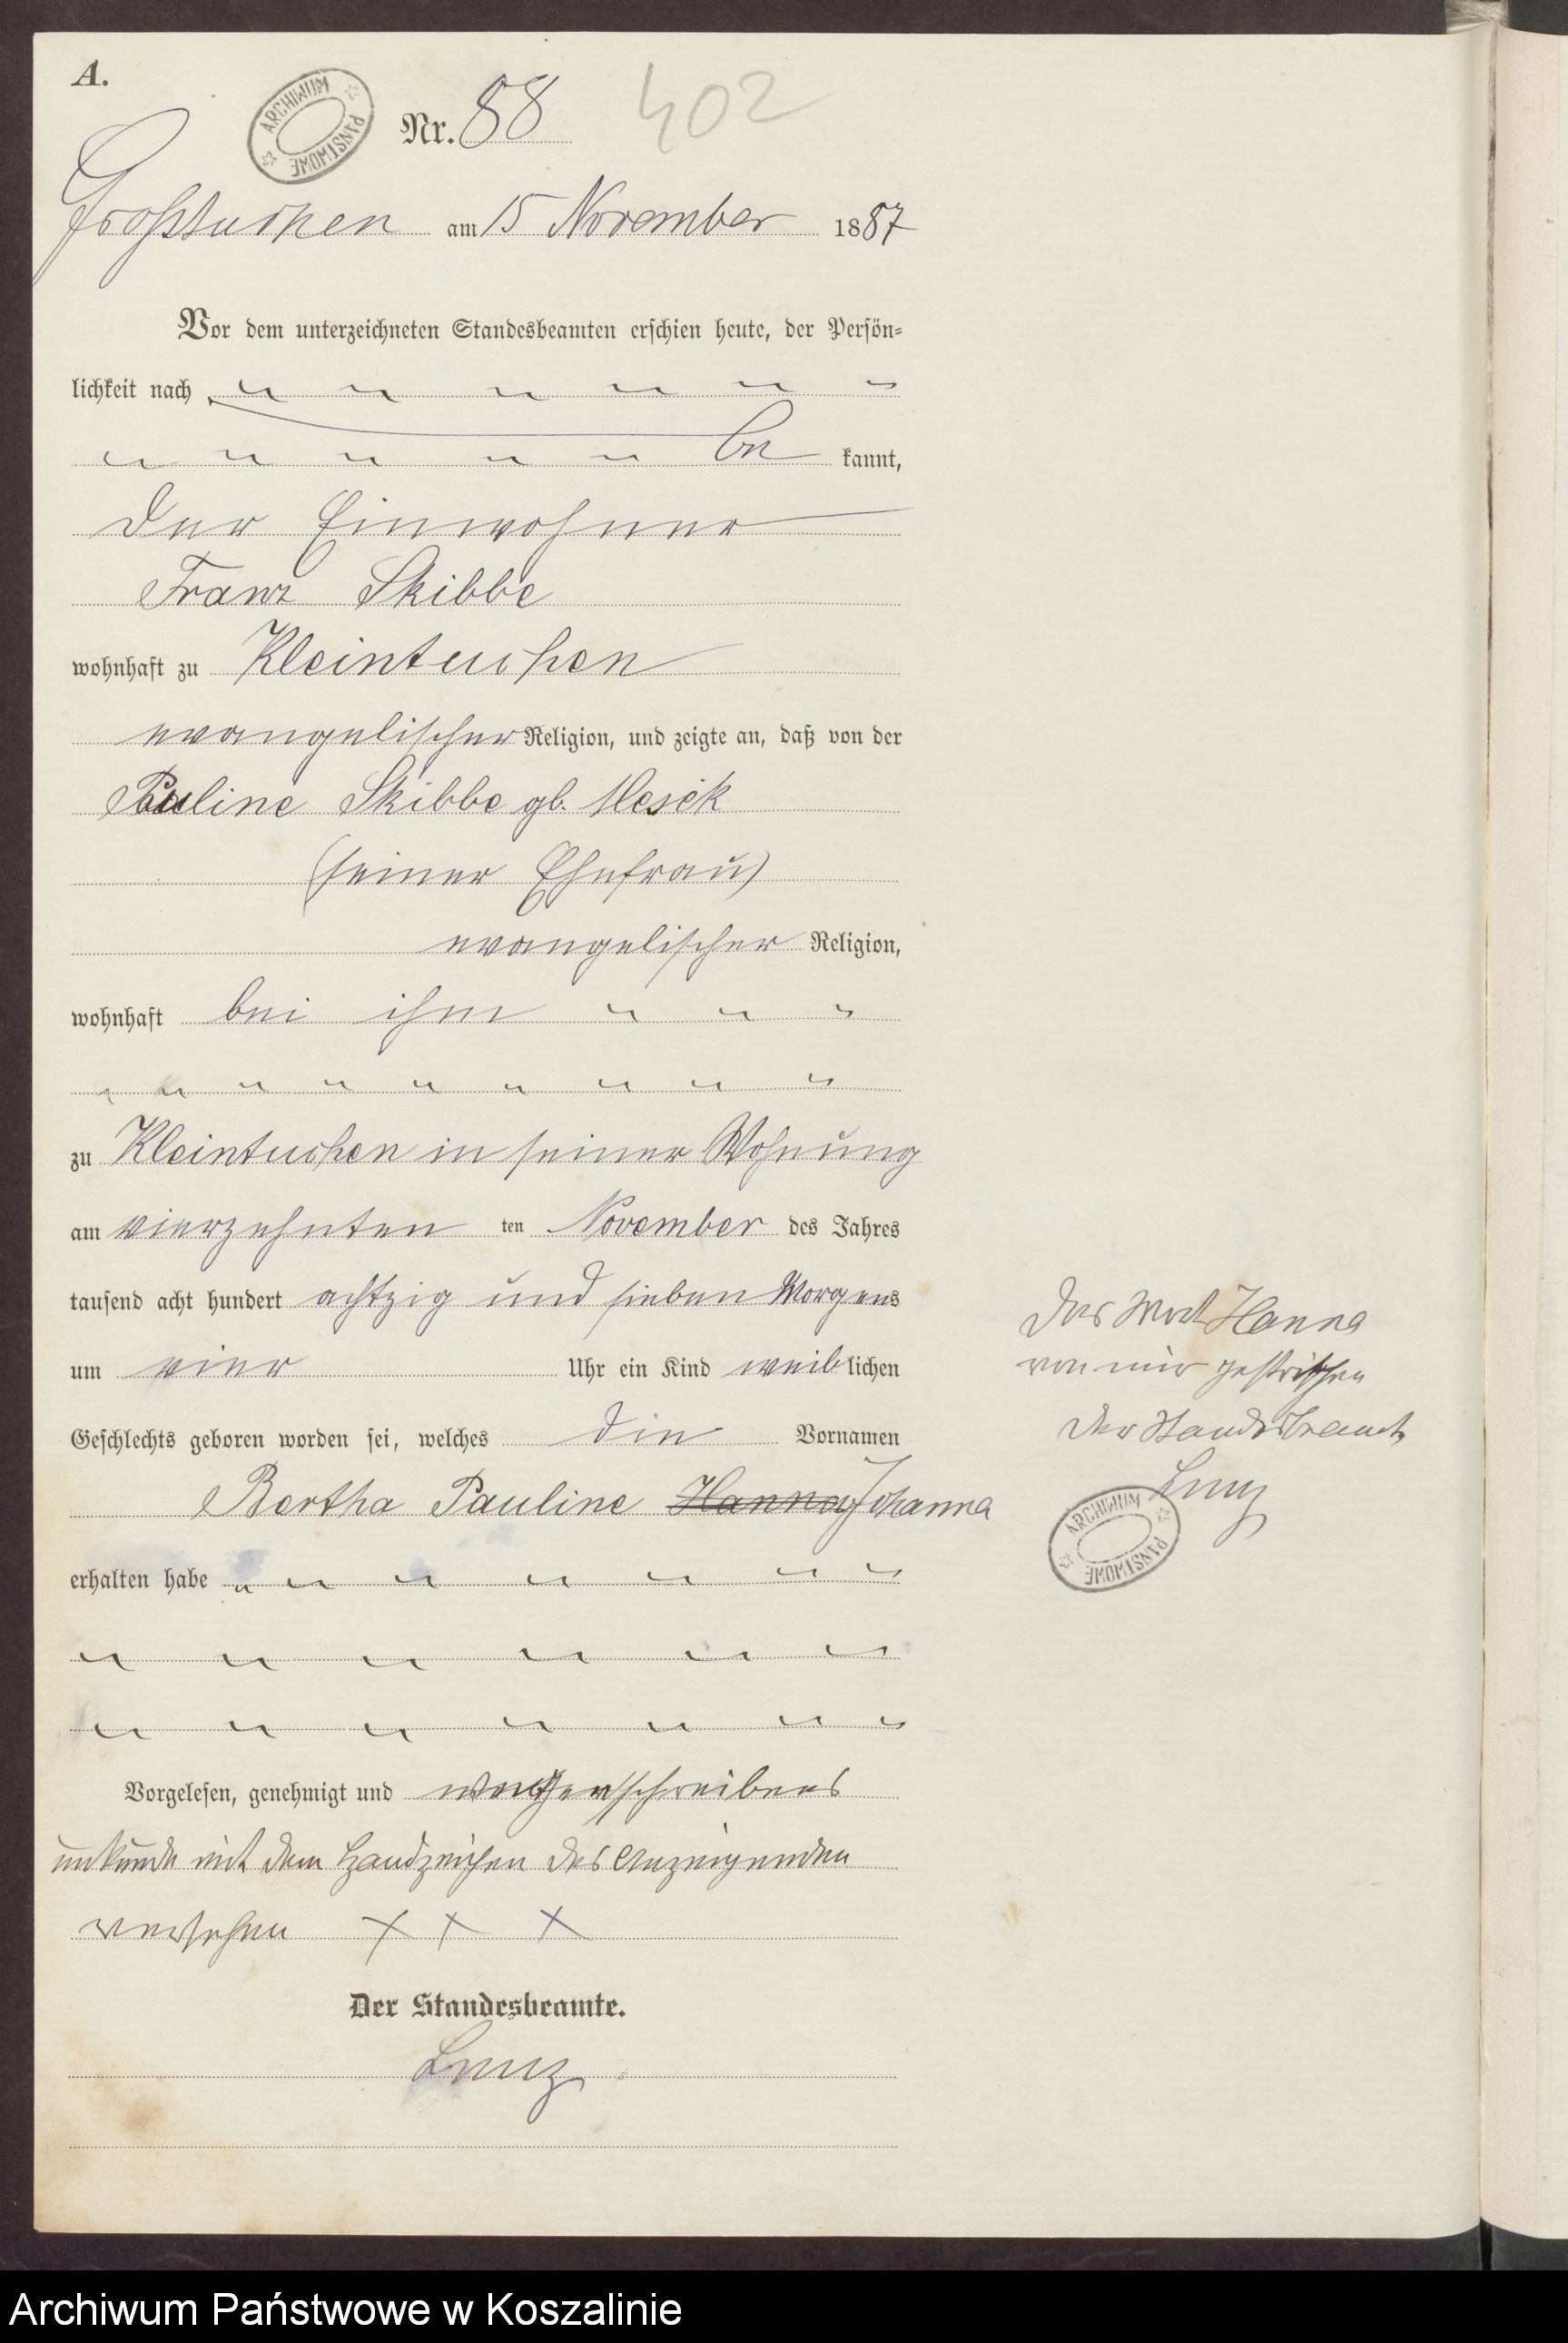 A.
ARCHIWUM PAŃSTWOWE
Nr. 88
402
Großtuchen am 15 November 1887
Vor dem unterzeichneten Standesbeamten erschien heute, der Persön=
lichkeit nach " " " " " "
" " " " " be kannt,
der Einwohner
Franz Skibbe
wohnhaft zu Kleintuchen
evangelischer Religion, und zeigte an, daß von der
Pauline Skibbe gb.
(seiner Ehefrau)
evangelischer Religion,
wohnhaft bei ihm " " "
" " " " " " " " "
zu Kleintuchen in seiner Wohnung
am vierzehnten ten November des Jahres
tausend acht hundert achtzig und sieben Morgens
um vier Uhr ein Kind weiblichen
Geschlechts geboren worden sei, welches die Vornamen
Bertha Pauline Hanna Johanna
erhalten habe " " " " " " "
" " " " " " "
" " " " " " "
Vorgelesen, genehmigt und wegen schreibens
unkunde mit dem Handzeichen des Anzeigenden
versehen + + +
Der Standesbeamte.
Lenz
Das Wort Hanna
von mir gestrichen
Der Standesbeamte
Lenz
ARCHIWUM PAŃSTWOWE
Archiwum Państwowe w Koszalinie